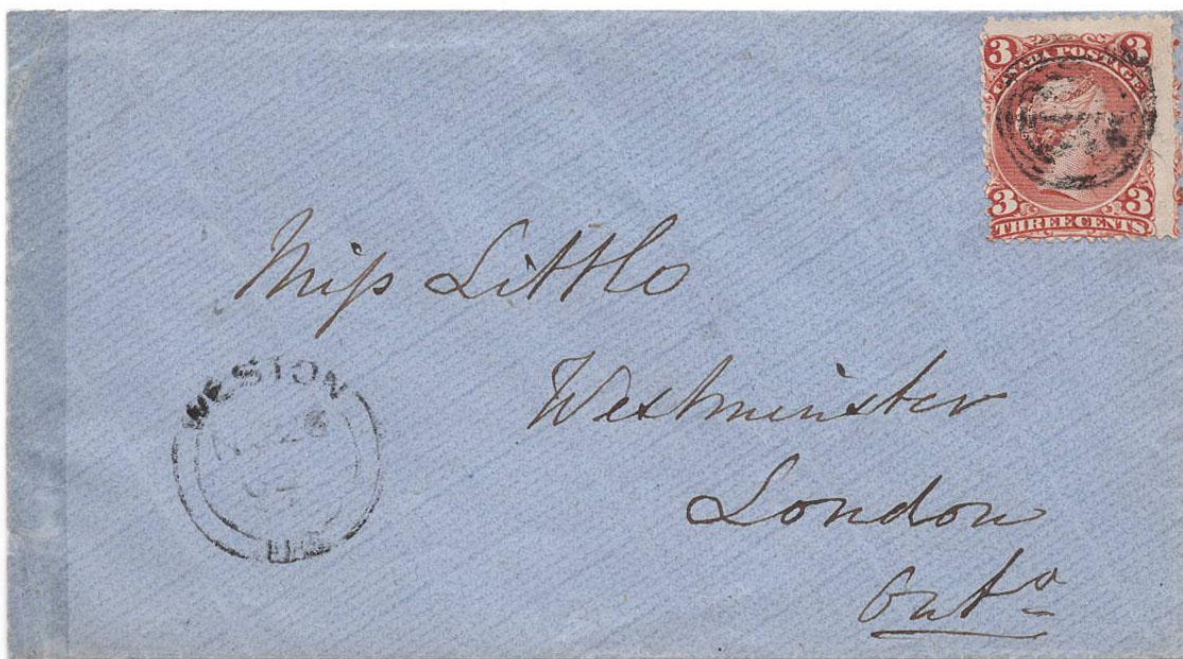 3 3
CANADA POSTAGE
3 3
THREE CENTS
Miss Little
Westminster
London
Onto
WESTON